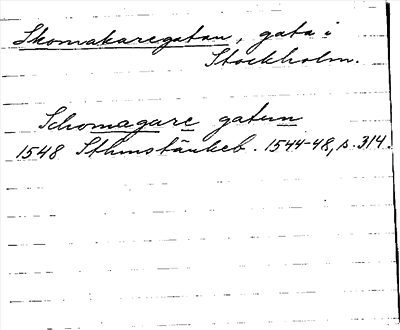 Skomakaregatan, gata i
Stockholm.
Schomagare gatun
1548 Sthmstänkeb. 1544-48, s. 314.